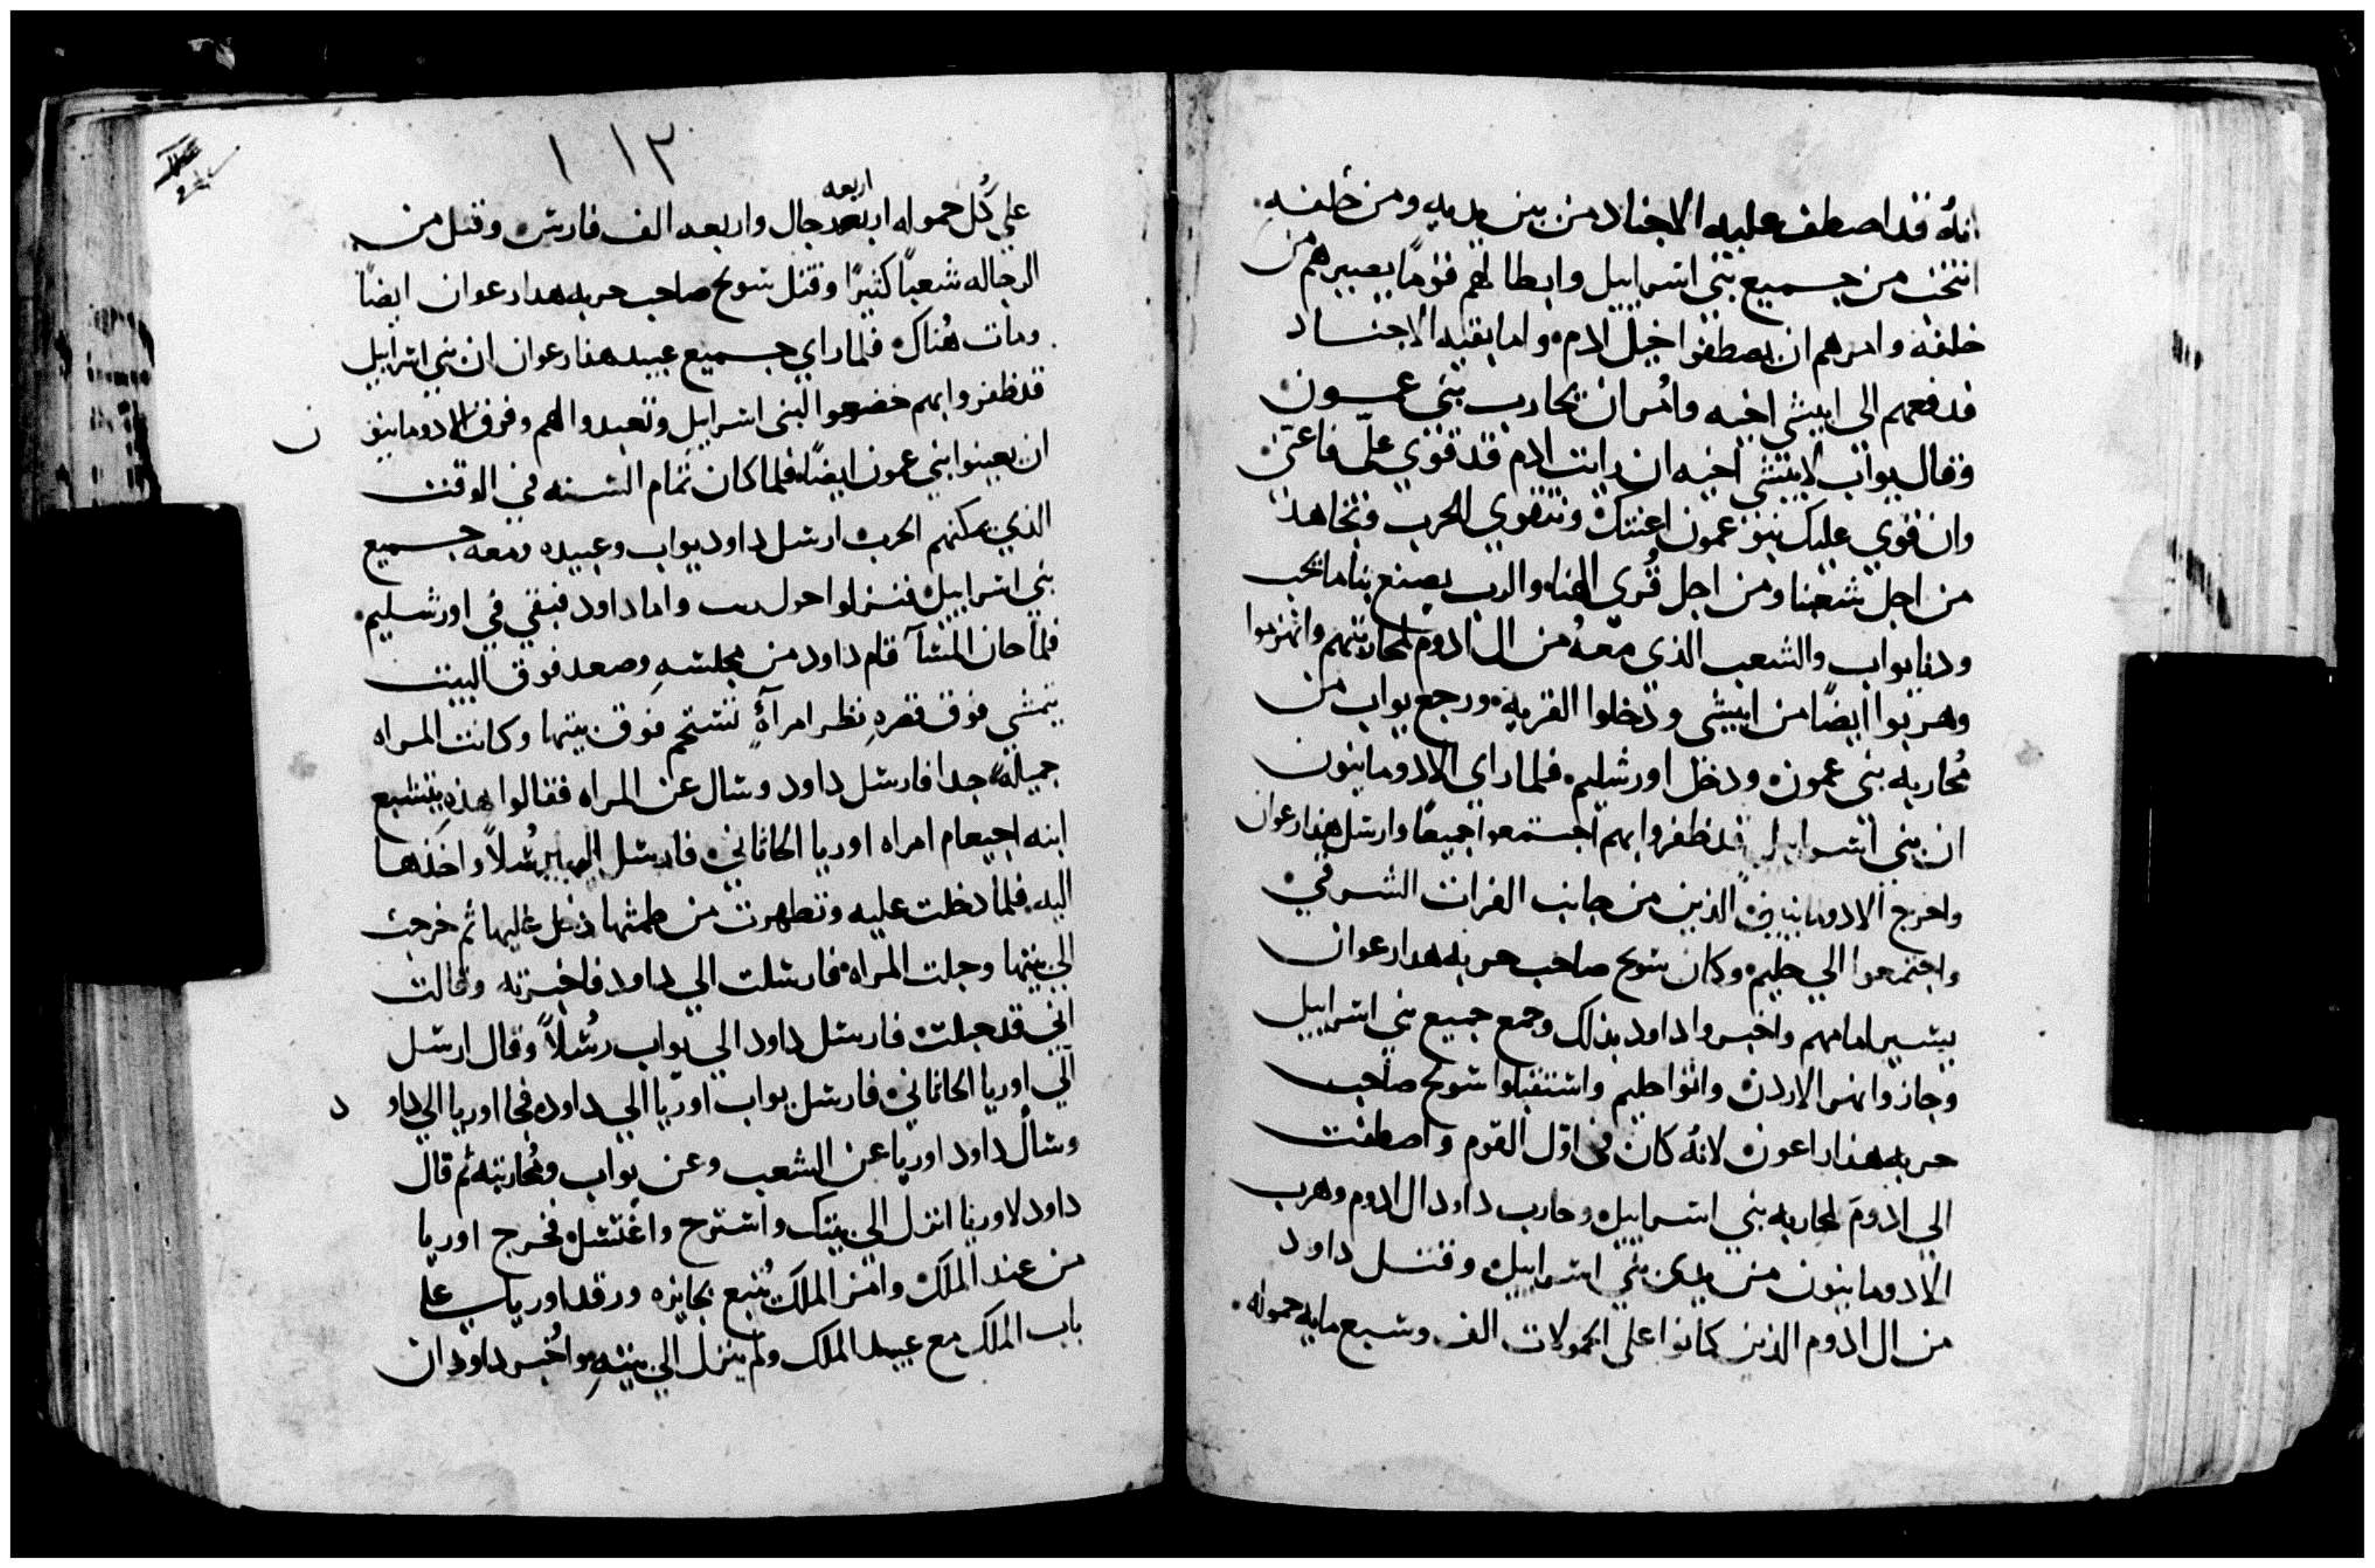 انهُ قد اصطف عليه الاجناد من بين يديه ومن خلفه
انتخب من جميع بني اسراييل وابطالهم قومًا يصيرهم من
خلفه وامرهم ان يصطفوا خيل ادم واما بقيه الاجناد
فدفعهم الى ابيشي اخيه وامر ان يحارب بني عمون
وقال يواب لابيشي اخيه ان رايت ادم قد قوي علي فاعني
وان قوي عليك بنو عمون اعنتك ونتقوي للحرب ونجاهد
من اجل شعبنا ومن اجل قُري الهنا والرب يصنع بنا ما يحب
ودنا يواب والشعب الذي معهُ من ال ادوم لمحاربتهم وانهزموا
وهربوا ايضًا من ابيشي ودخلوا القريه ورجع يواب من
مُحاربه بني عمون ودخل اورشليم فلما راي الادومانيون
ان بني اسراييل قد ظفروا بهم اجتمعوا جميعًا وارسل هدارعوان
واخرج الادومانيين الذين من جانب الفرات الشرقي
واجتمعوا الي حليم وكان شوبح صاحب حربه هدارعوان
يسير امامهم واخبروا داود بذلك وجمع جميع بني اسراييل
وجازوا نهر الاردن واتوا حليم واستقبلوا شوبح صاحب
حربه هداراعون لانهُ كان في اول القوم واصطفت
الي ادوم لمحاربه بني اسراييل وحارب داود ال ادوم وهرب
الادومانيون من يدي بني اسراييل وقتل داود
من ال ادوم الذين كانوا على الحمولات الف وسبع مايه حموله
١١٣
اربعه
علي كُل حموله اربعه رجال واربعه الف فارس وقتل من
الرجاله شعبًا كثيرًا وقتل شوبح صاحب حربه هدارعوان ايضًا
ومات هُناك فلما راي جميع عبيد هدارعوان ان بني اسراييل
قد ظفروا بهم خضعوا لبني اسراييل وتعبدوا لهم وفرق الادومانيو ن
ان يعينوا بني عمون ايضًا فلما كان تمام السنه في الوقت
الذي يمكنهم الحرب ارسل داود يواب وعبيده ومعه جميع
بني اسراييل فنزلوا حول ربت واما داود فبقي في اورشليم
فلما حان المسآ قام داود من مجلسهِ وصعد فوق البيت
يتمشي فوق قصرهِ نظر امرآةً تستحم فوق بيتها وكانت المراه
جميلةً جدا فارسل داود وسال عن المراه فقالوا هذهِ بتشبع
ابنه اجيعام امراه اوريا الحاثاني فارسل اليها رُسُلاً واخذها
اليه فلما دخلت عليه وتطهرت من طمثها دخل عليها ثم خرجت
الي بيتها وحبلت المراه فارسلت الي داود فاخبرته وقالت
اني قد حبلت فارسل داود الي يواب رسُلاً وقال ارسل
الي اوريا الحاثاني فارسل يواب اوريا الي داود فجا اوريا الي داو د
وسأل داود اوريا عن الشعب وعن يواب ومُحاربته ثم قال
داود لاوريا انزل الي بيتك واسترح واغتسل فخرج اوريا
من عند الملك وامر الملك يُتبع بجايزه ورقد اوريا علي
باب الملك مع عبيد الملك ولم ينزل الي بيتهِ واخُبر داود ان